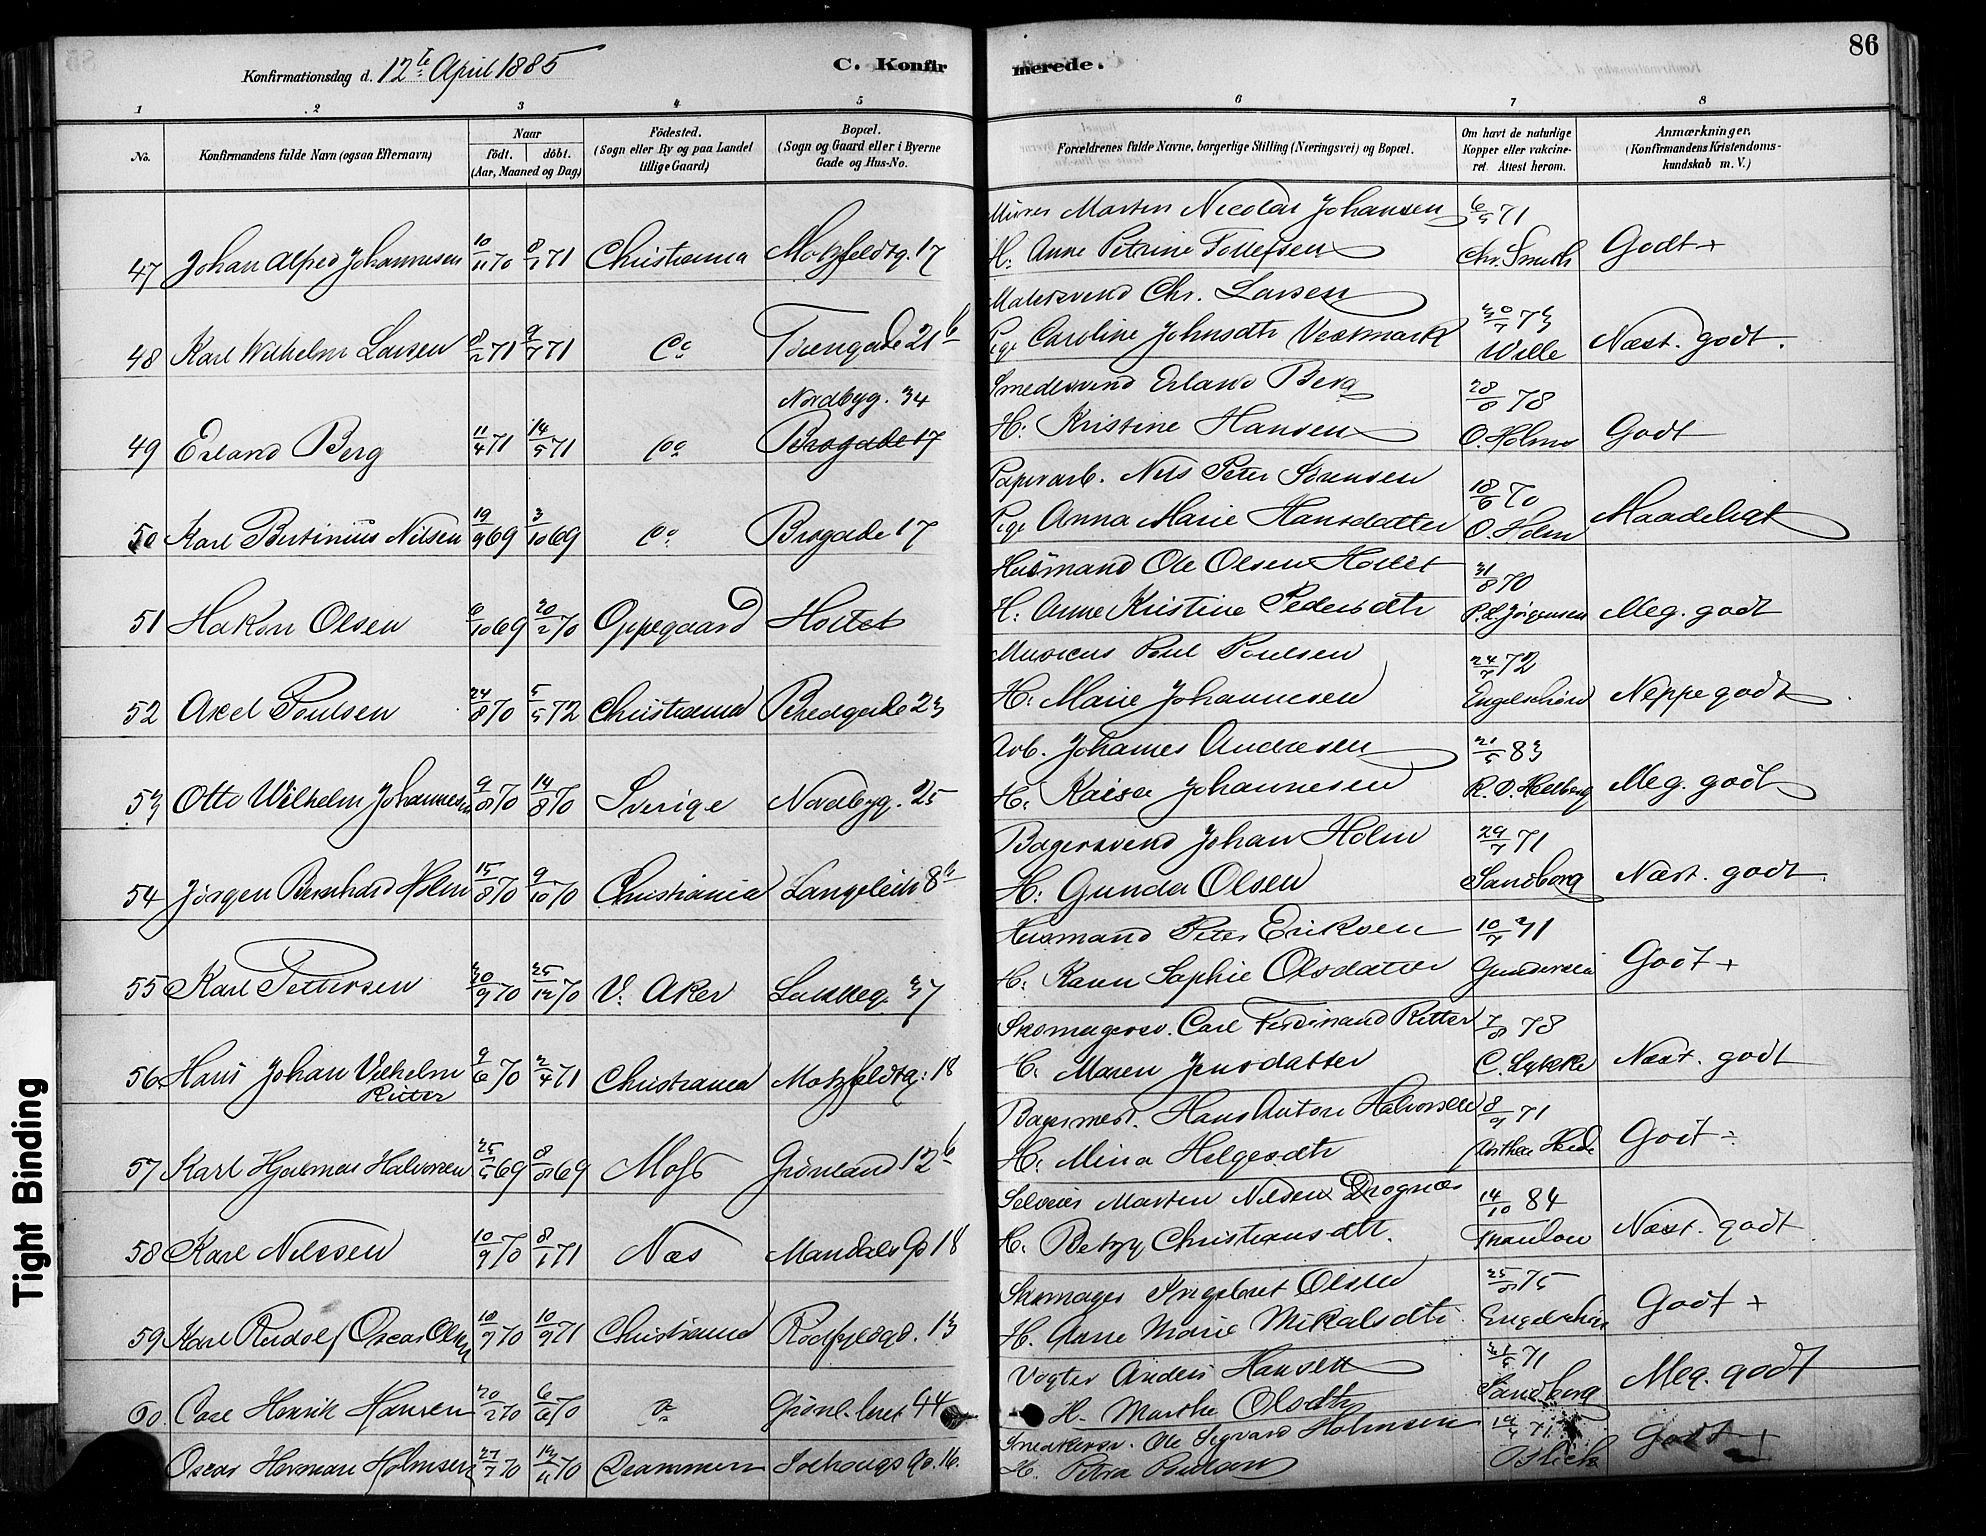 86
Konfirmationsdag d. 12te April 1885
C. Konfirmerede.
1 2 3 4 5 6 7 8
No.
Konfirmandens fulde Navn (ogsaa Efternavn)
Naar
födt. döbt.
(Aar, Maaned og Dag)
Födested.
(Sogn eller By og paa Landet
tillige Gaard)
Bopæl.
(Sogn og Gaard eller i Byerne
Gade og Hus-No.
Forældrenes fulde Navne, borgerlige Stilling (Næringsvei) og Bopæl.
Om havt de naturlige
Kopper eller vakcine-
ret. Attest herom.
Anmærkninger.
(Konfirmandens Kristendoms-
kundskab m. V.)
Murer Martin Nicolai Johansen 6/5 71
47 Johan Alfred Johannesen 10/11 70 8/1 71 Christiania Motzfeldtg. 17 H: Anne Petrine Tollefsen Chr. Smith Godt +
Malersvend Chr. Larsen 30/7 73
48 Karl Wilhelm Larsen 8/2 71 9/7 71 Do Tøiengade 21b Pige Caroline Johnsdtr Vestmark Wille Næst. godt.
Nordbyg. 34 Smedesvend Erland Berg 28/8 78
49 Erland Berg 11/4 71 14/5 71 Do Brogade 17 H: Kristine Hansen O. Holm Godt
Papirarb. Nils Peter Sørensen 18/6 70
50 Karl Bertinius Nilsen 19/9 69 3/10 69 Do Brogade 17 Pige Anna Marie Hansdatter O. Holm Maadeligt
Husmand Ole Olsen Holtet 31/8 70
51 Hakon Olsen 6/10 69 20/2 70 Oppegaard Holtet H: Anne Kristine Pedersdtr P. L. Jørgensen Meg. godt
Musicus Poul Poulsen 24/7 72
52 Axel Poulsen 24/8 70 5/5 72 Christiania Bredgade 23 H. Marie Johannesen Engelschiøn Neppe godt
Arb. Johannes Andresen 21/5 83
53 Otto Wilhelm Johannesen 9/8 70 14/8 70 Sverige Nordbyg. 25 H. Kaisa Johannesen Meg. godt
Bagersvend Johan Holm 29/7 71
54 Jørgen Bernhard Holm 15/8 70 9/10 70 Christiania Langeleiks 8b H: Gunda Olsen Sandberg Næst. godt.
Husmand Peter Eriksen 10/7 71
55 Karl Pettersen 30/9 70 25/12 70 V. Aker 37 H. Karen Sophie Olsdatter Gundersen Godt +
Skomagersv. Carl Ferdinand Ritter 7/8 78
56 Hans Johan Vilhelm 9/6 70 2/4 71 Christiania Motzfeldtg: 18 H. Maren Jensdatter C. Lykke Næst. godt
Ritter
Bagermest. Hans Anton Halvorsen 8/9 71
57 Karl Hjalmar Halvorsen 25/5 69 8/8 69 Moss Grønland 12b H. Mina Helgesdtr Godt ÷
Selveier Martin Nilsen Drognæs 14/10 84
58 Karl Nilssen 10/9 70 8/1 71 Næs Mandals Gd 18 H. Betzy Christiansdtr. Næst. godt
Skomager Ingebret Olsen 25/8 75
59 Karl Rudolf Oscar Olsen 18/9 70 10/9 71 Christiania Rødfyldgd. 13 H. Anne Marie Mikalsdtr Engelschiøn Godt +
Vogter Anders Hansen 21/5 71
60. Carl Henrik Hansen 20/2 70 6/6 70 Do Grønl. leret 44 H. Marthe Olsdtr Sandberg Meg. godt
Snedkersv. Ole Sigvard Holmsen 71
Oscar Herman Holmsen 27/7 70 13/11 70 Drammen Solhougs Gd. 16. H. Petra Godt +
Tight Binding